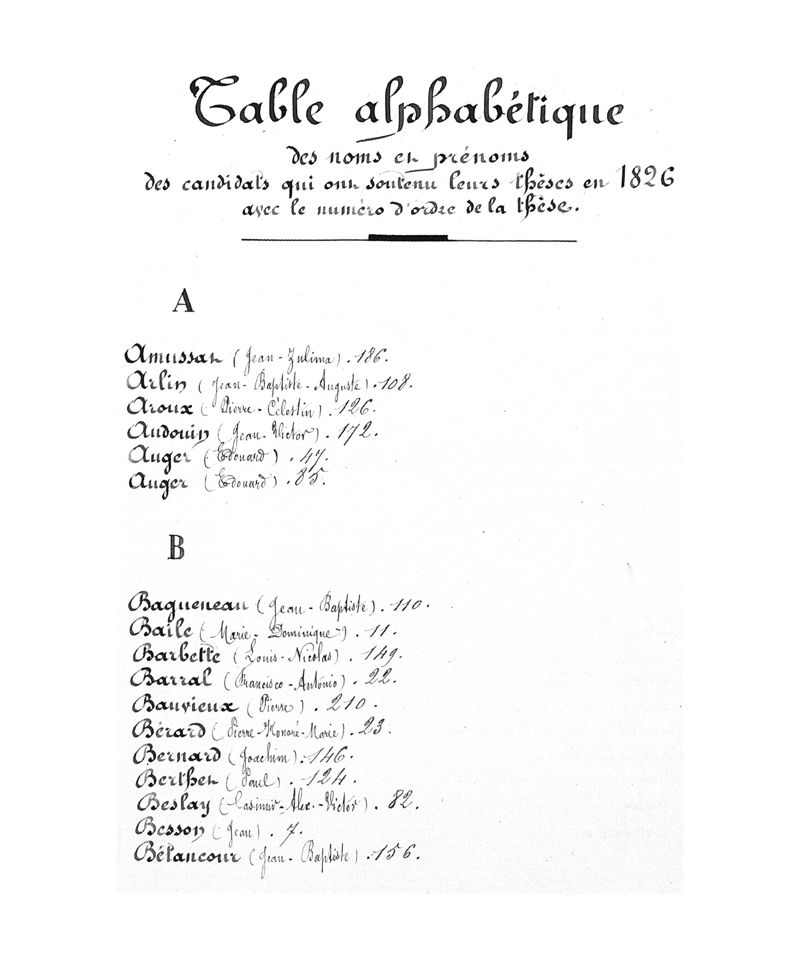 Table alphabétique
des noms et prénoms
des candidats qui ont soutenu leurs thèses en 1826
avec le numéro d'ordre de la thèse.
A
Amussat (Jean-Zulima). 186.
Arlin (Jean-Baptiste-Auguste). 108.
Aroux (Pierre-Célestin). 126.
Audouin (Jean-Victor). 172.
Auger (Edouard). 47.
Auger (Edouard). 85.
B
Bagueneau (Jean-Baptiste). 110.
Baile (Marie-Dominique). 11.
Barbette (Louis-Nicolas). 149.
Barral (Francisco-Antonio). 22.
Bauvieux (Pierre). 210.
Bérard (Pierre-Honoré-Marie). 23.
Bernard (Joachim). 146.
Berthet (Paul). 124.
Beslay (Casimir-Alex.-Victor). 82.
Besson (Jean). 7.
Bétancour (Jean-Baptiste). 156.